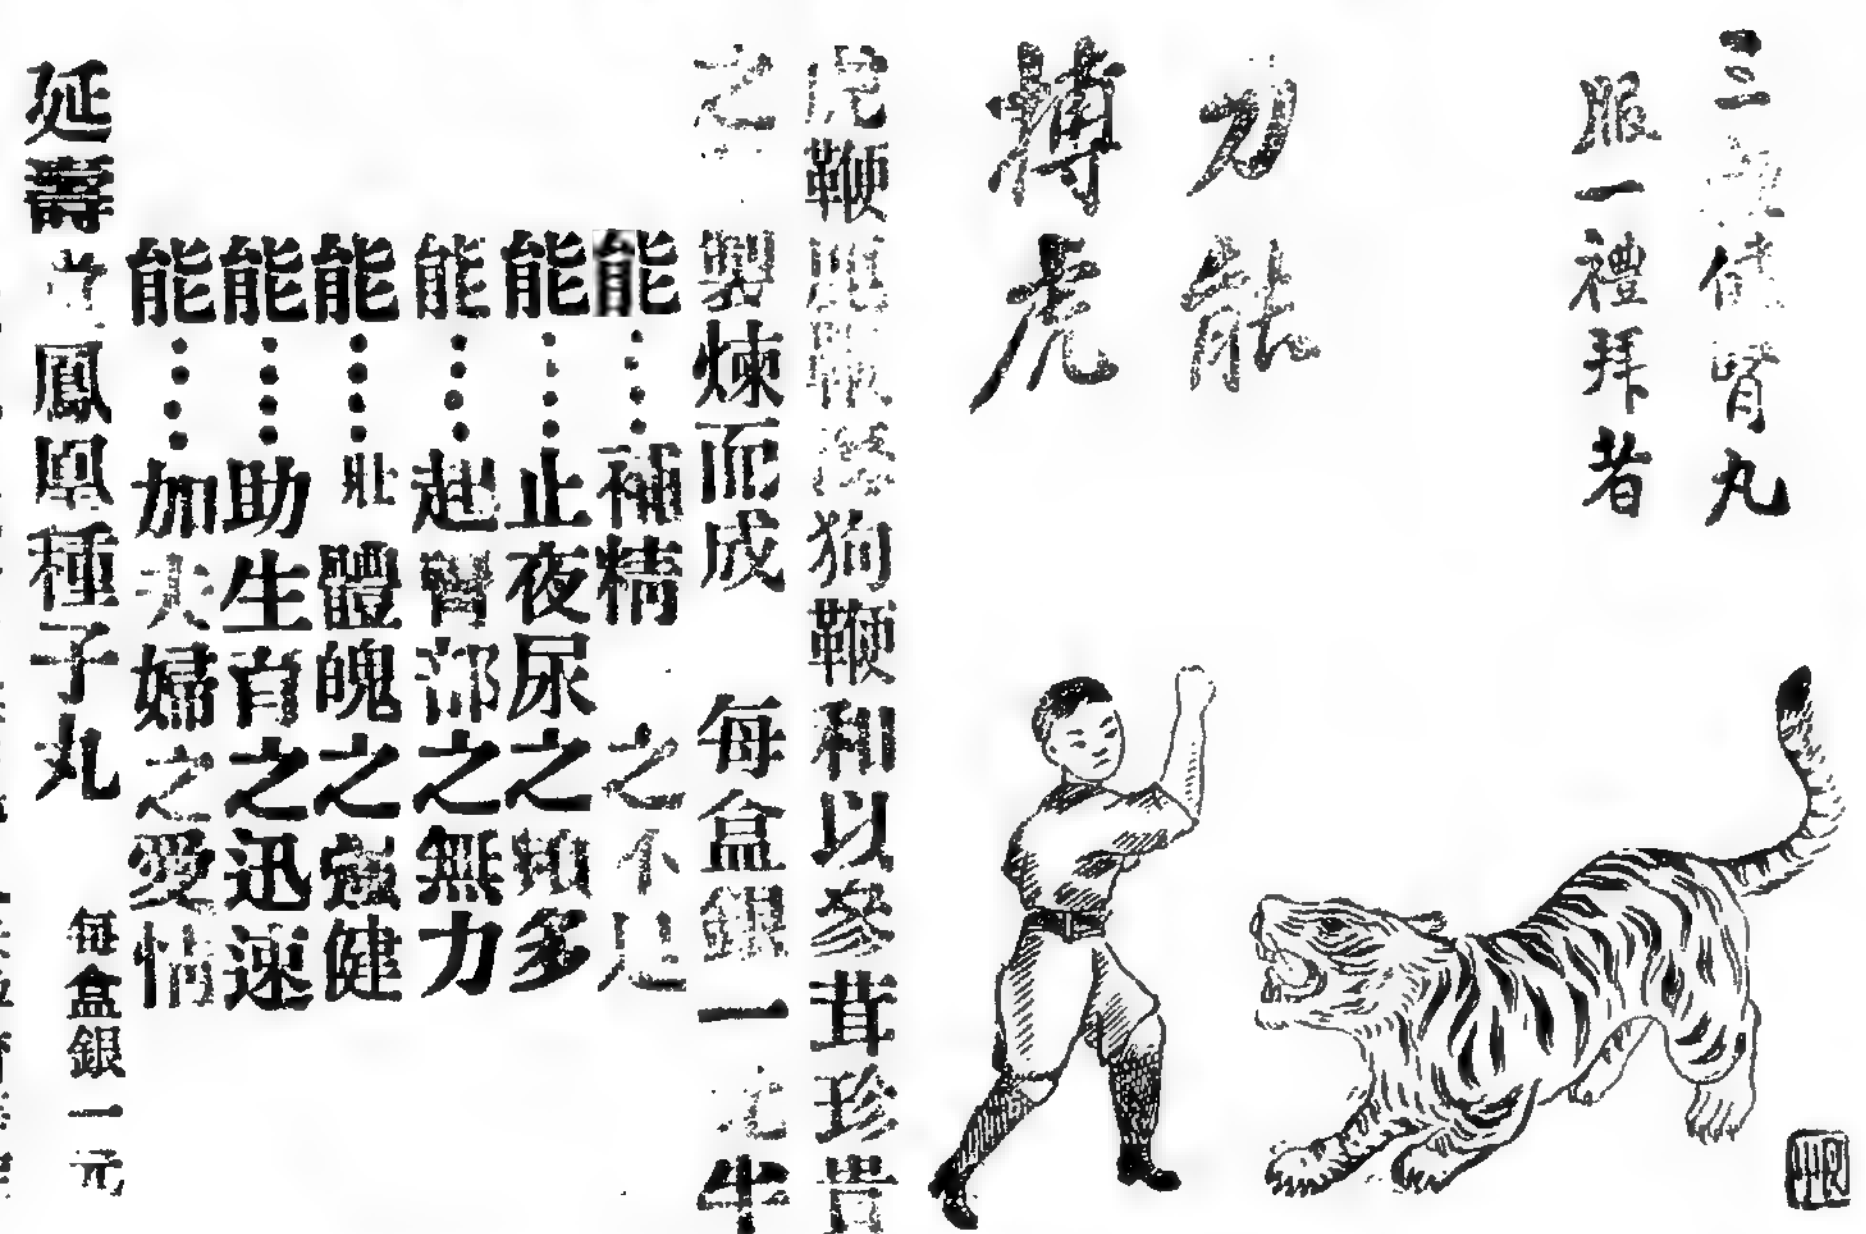 三健腎丸
服一禮拜者
力能
搏虎
虎鞭鹿鞭海狗鞭和以參茸珍貴
之製煉而成 每盒銀一元半
能⋯⋯補精 之不足
能⋯⋯止夜尿之頻多
能⋯⋯起腎部之無力
能⋯⋯壯體魄之強健
能⋯⋯助生育之迅速
能⋯⋯加夫婦之愛情
延壽鳳凰種子丸 每盒銀一元